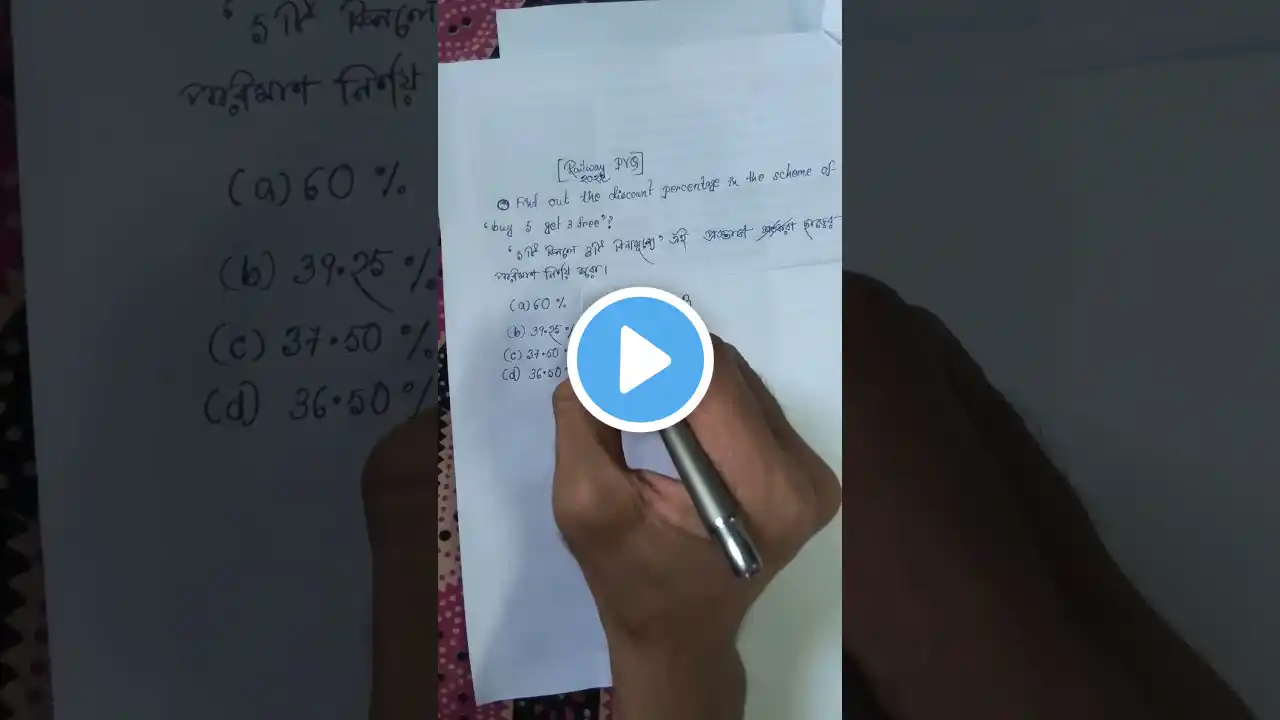 [Railway PYQ]
২০২২
Find out the discount percentage in the scheme of
"buy 5 get 3 free"?
"5টি কিনলে 3টি বিনামূল্যে" এই প্রস্তাবে ছাড়ের
পরিমাণ নির্ণয় করো।
(a) 60 %
(b) 39.25 %
(c) 37.50 %
(d) 36.50 %